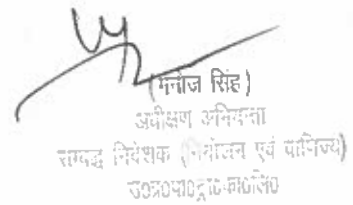 (मनोज सिंह)
अधीक्षण अभियन्ता
सम्बद्ध निदेशक (नियोजन एवं वाणिज्य)
उ0प्र0पा0ट्रा0का0लि0